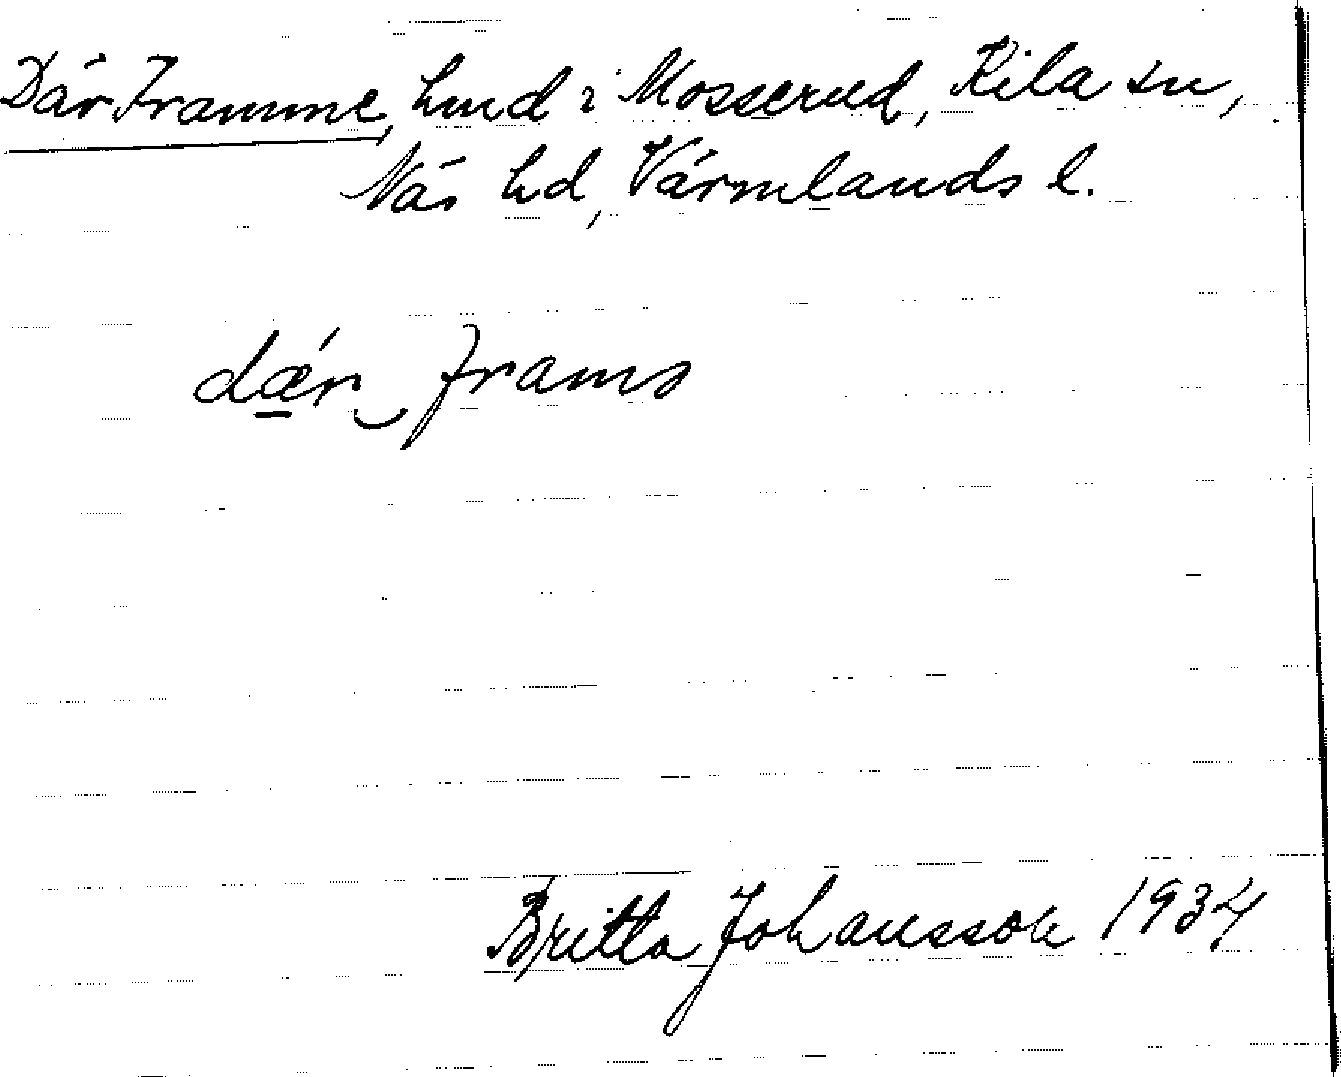 Där Framme, hmd i Mosserud, Kila sn,
Näs hd, Värmlands l.
dær frams
Britta Johansson 1934